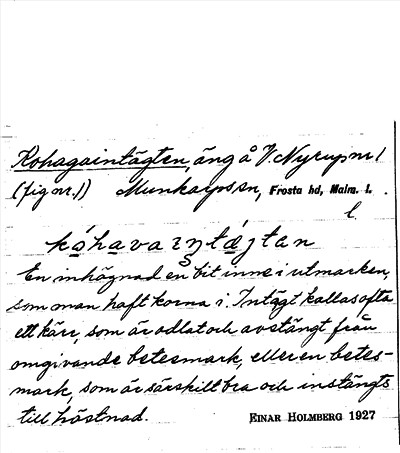 Kohagaintägten, äng å V. Nyrup nr 1
(fig nr. 1)) Munkarps sn, Frosta hd, Malm. l.
l.
kóhavaintäjtan
En inhägnad en bit inne i utmarken,
som man haft korna i. Intägt kallas ofta
ett kärr, som är odlat och avstängt från
omgivande betesmark, eller en betes-
mark, som är särskilt bra och instängts
till höstnad.
EINAR HOLMBERG 1927